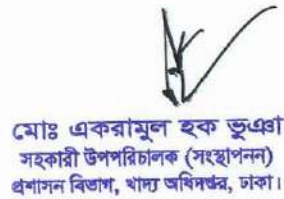 মোঃ একরামুল হক ভুঞা
সহকারী উপপরিচালক (সংস্থাপনন)
প্রশাসন বিভাগ, খাদ্য অধিদপ্তর, ঢাকা।